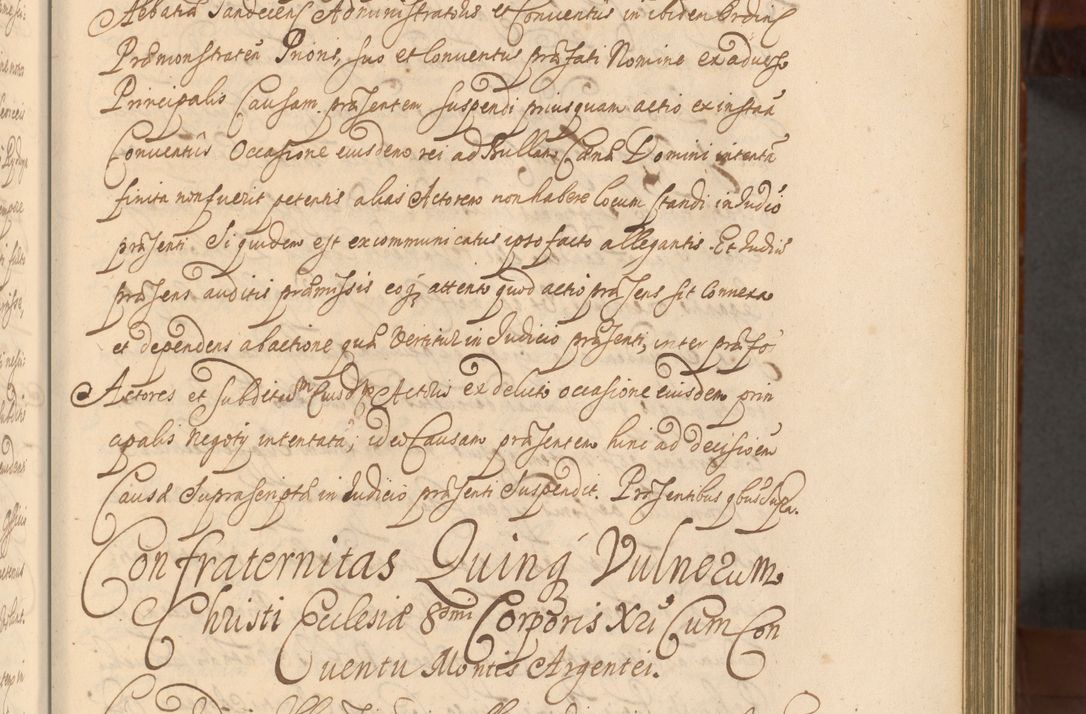 Abbatia Sandecens Administratoris et Conventus in ibidem Ordinis
Præmonstraten Prioris, suo et Conventus præfati Nomine ex adverso
Principalis Causam præsentem suspendi priusquam actio ex instan
Conventûs Occasione eiusdem rei ad Bullam Cænæ Domini intenta
finita non fuerit petentis alias Actorem non habere locum standi in Judicio
præsenti Si quidem est excommunicatus ipso facto allegantis. Et Judiu
præsens auditis præmissis eoq attento quod actio præsens sit Connexa
et dependens ab actione quæ Vertitur in Judicio præsenti, inter præfo
Actores et Subditum Eiusdem Actoris ex delicto occasione eiusdem prin
cipalis Negotij intentata; ideo Causam præsentem hinc ad decisioem
Causæ Suprascriptæ in Judicio præsenti Suspendit. Præsentibus qbus Supra.
Confraternitas Quinq Vulnerum
Christi Ecclesiæ Sömi Corporis Xri Cum Con
ventu Montis Argentei.